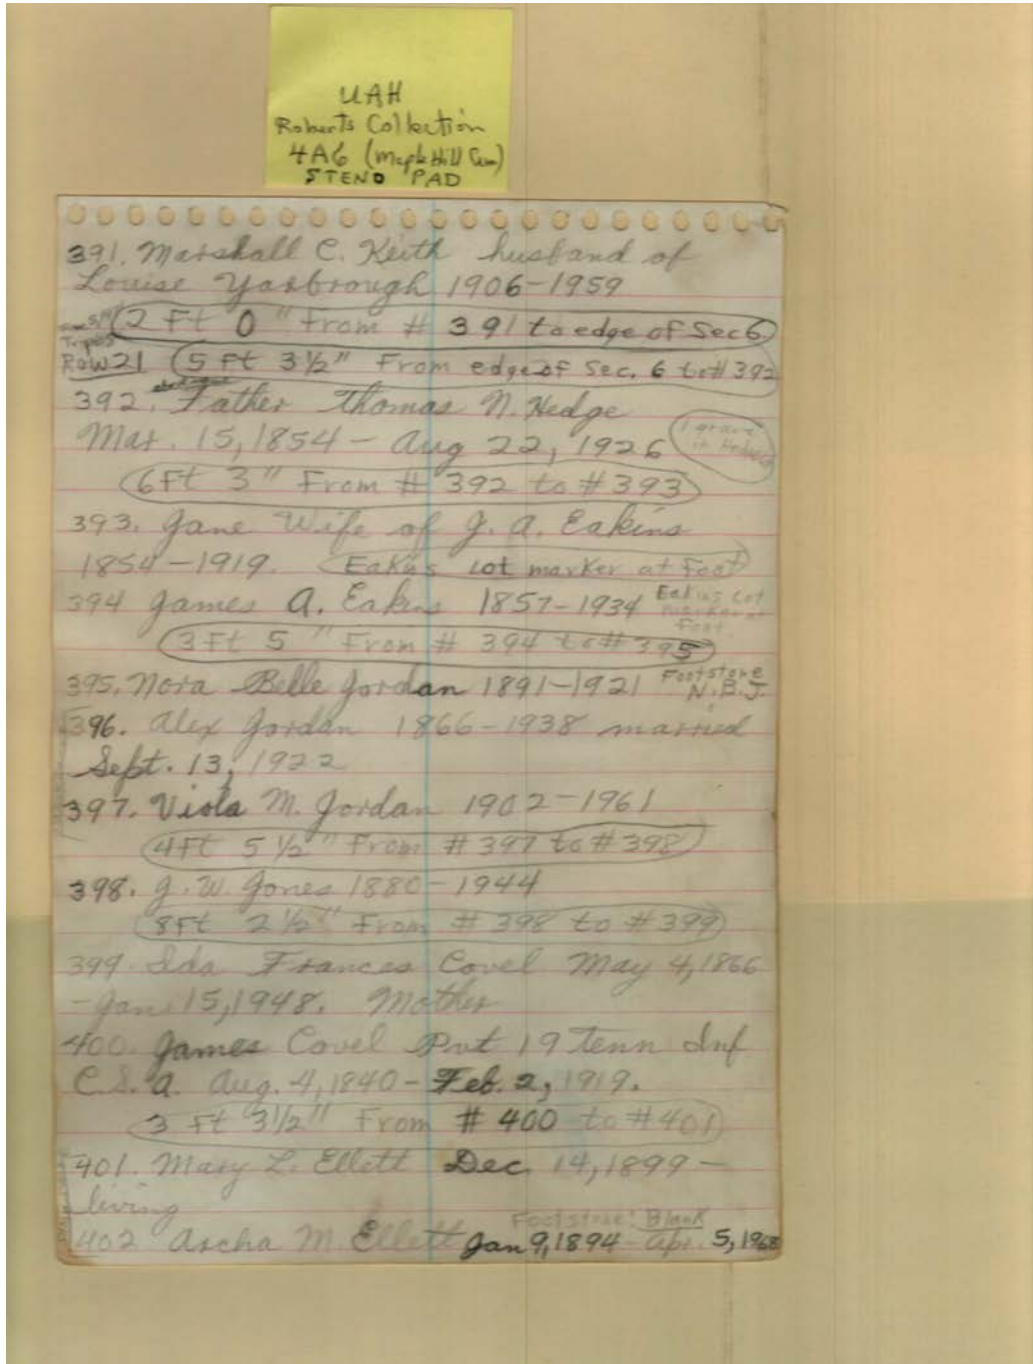 UAH
Roberts Collection
4A6 (Maple Hill Cem)
STENO PAD
391. Marshall C. Keith husband of
Louise Yarbrough 1906-1959
2 Ft 0 " From # 391 to edge of Sec 6
Row 21 5 Ft 3½" From edge of Sec. 6 to # 392
392. Father Thomas N. Hedge
Mar. 15, 1854 - Aug 22, 1926 1 grave
in
6Ft 3" From # 392 to # 393
393. Jane Wife of J. A. Eakins
1854-1919. Eakins Lot marker at Foot
394 James A. Eakins 1857-1934 Eakins Lot
marker at
Foot.
3 Ft 5 " From # 394 to # 395
395. Nora Belle Jordan 1891-1921 Footstone
N.B.J.
396. Alex Jordan 1866-1938 married
Sept. 13, 1922
397. Viola M. Jordan 1902-1961
4Ft 5 ½" From # 397 to # 398
398. J. W. Jones 1880-1944
8Ft 2 ½" From # 398 to # 399
399. Ida Frances Covel May 4, 1866
- Jan. 15, 1948. Mother
400. James Covel Pvt 19 Tenn Inf
C.S.A. Aug. 4, 1840 - Feb. 2, 1919.
3 Ft 3½" From # 400 to # 401
401. Mary L. Ellett Dec. 14, 1899 -
living
Footstone: Blank
402 Ascha M. Ellett Jan 9, 1894 - Apr. 5, 1968